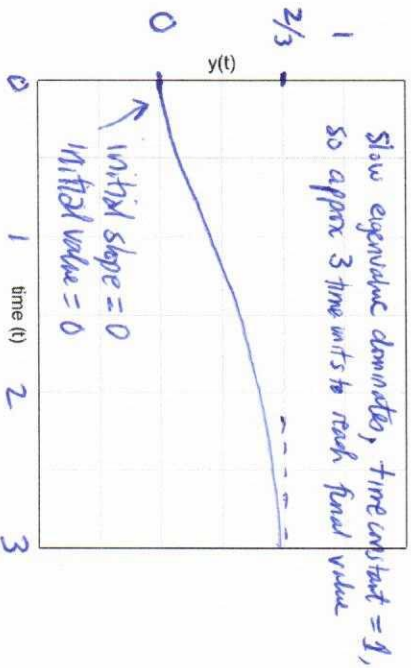 Slow eigenvalue dominates, time constant = 1,
so approx 3 time units to reach final value
1
2/3
0
y(t)
initial slope = 0
initial value = 0
0
1
2
3
time (t)